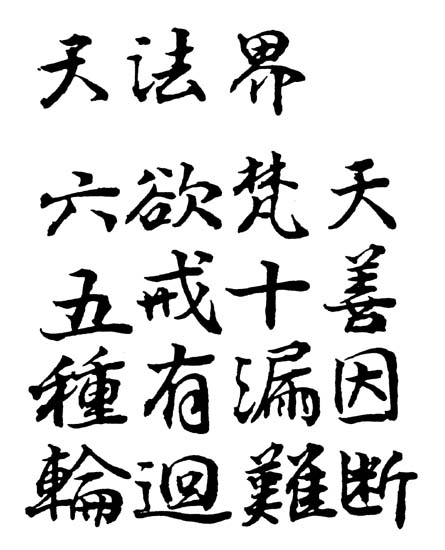 天法界
六欲梵天
五戒十善
種有漏因
輪迴難断